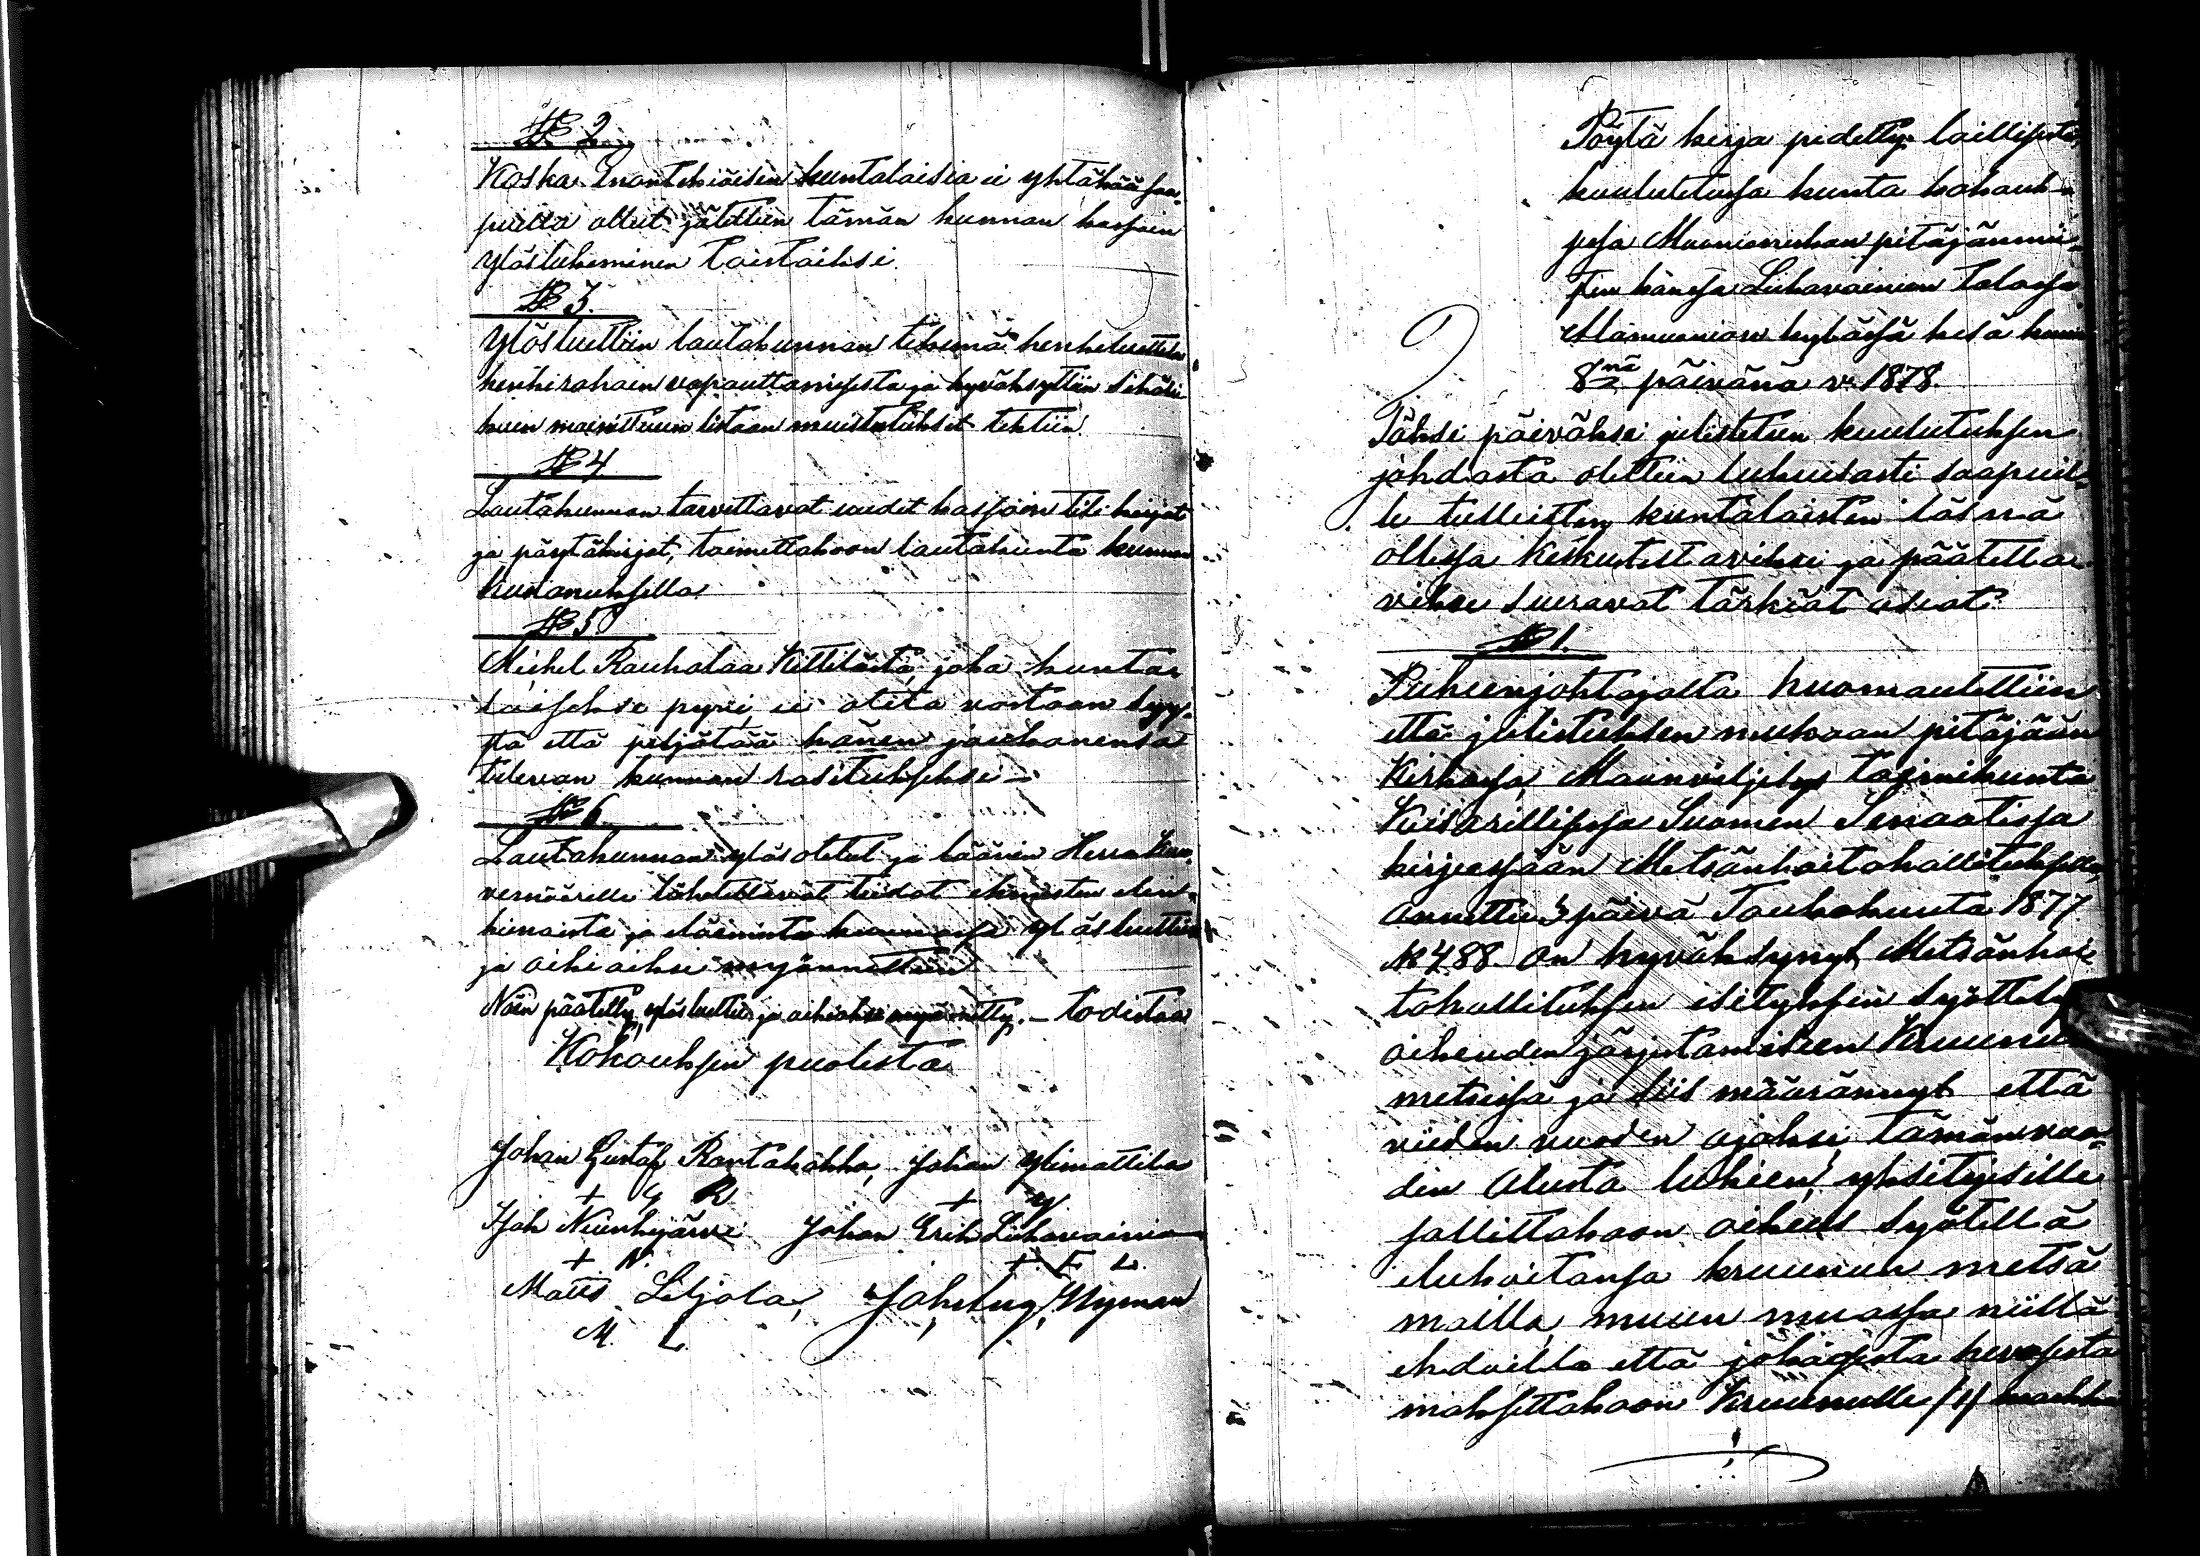 № 2
Koska Enontekiäisen kuntalaisia ei yhtäkää saa-
puilla ollut jätettiin tämän kunnan kassain
Ylöslukeminen toistaiksi.
№ 3.
Ylösluettiin lautakunnan tekemä henkiluettelo
henkirahain vapauttamisesta ja hyväksyttiin sikäli
kuin mainittuun listaan muistutukset tehtiin.
№ 4
Lautakunnan tarvittavat uudet kassain tili kirjat
ja pöytäkirjat, toimittakoon lautakunta kunnan
kustanuksella
№ 5
Michel Rauhalaa Kittilästä, joka kunta
laiseksi pyri, ei oteta vastaan syy-
stä että peljätää hänen joukonensa
tulevan kunnan rasitukseksi —
№ 6.
Lautakunnan ylös otetut ja läänin Herra Kuu-
vernöörille lähetettävät tiedot ihmisten elin-
keinoista ja eläimistä kunnassa ylösluettiin
ja oikiaksi myönnettiin
Näin päätetty, ylösluettu ja oikiaksi myönnetty. — todistaa
Kokouksen puolesta
Johan Gustaf Rantakokko, Johan Ylimattila
+ G R + Y
Joh Niinkijärvi Johan Erik Liikavainio
+ N. + E L.
Matts Liljola, Joh. Nyman
M. L.
Pöytä kirja pidetty laillisesti
kuulutetussa kunta kokouk-
sessa Muonionniskan pitäjänmie-
sten kansa Liikavainion talossa
Alamuonion kylässä kesä kuun
8nä päivänä v. 1878.
Täksi päiväksi julistetun kuulutuksen
johdosta otettiin lukuisasti saapuil-
le tulleitten kuntalaisten läsnä
ollessa keskusteltaviksi ja päätettä-
viksi seuravat tärkiät asiat.
№ 1.
Puheenjohtajalta huomautettiin
että julistuksen mukaan pitäjään
Kirkossa, Maanviljelys toimikunta
Keisarillisessa Suomen Senaatissa
kirjeessään Metsänhoitohallitukselle,
annettu 3 päivä Toukokuuta 1877
№ 488. on hyväksynyt Metsänhoi-
tohallituksen esityksen syöttö
oikeuden järjestämiseen Kruunun
metsissä ja siis määrännyt että
viiden vuoden ajaksi, tämän vuo-
den alusta lukien, yksityisille
sallittakoon oikeus syöttää
elukoitansa kruunun metsä
mailla, muun muassa niillä
ehdoilla että jokaisesta hevosesta
maksettakoon Kruunulle /1/ markka